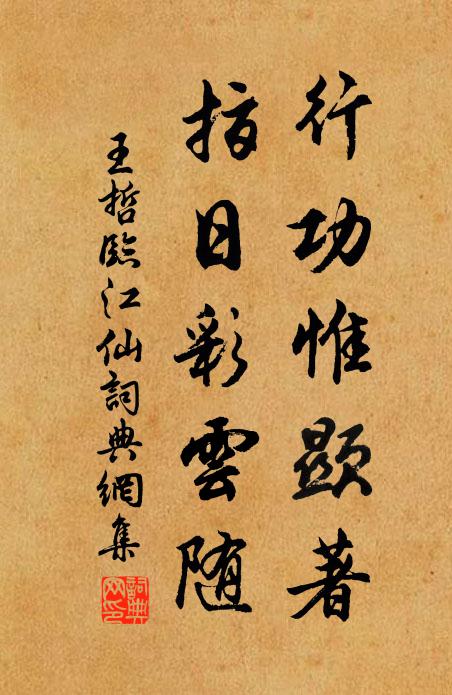 行功惟顯著
指日彩雲随
王哲臨江仙詞典網集
詞典网印